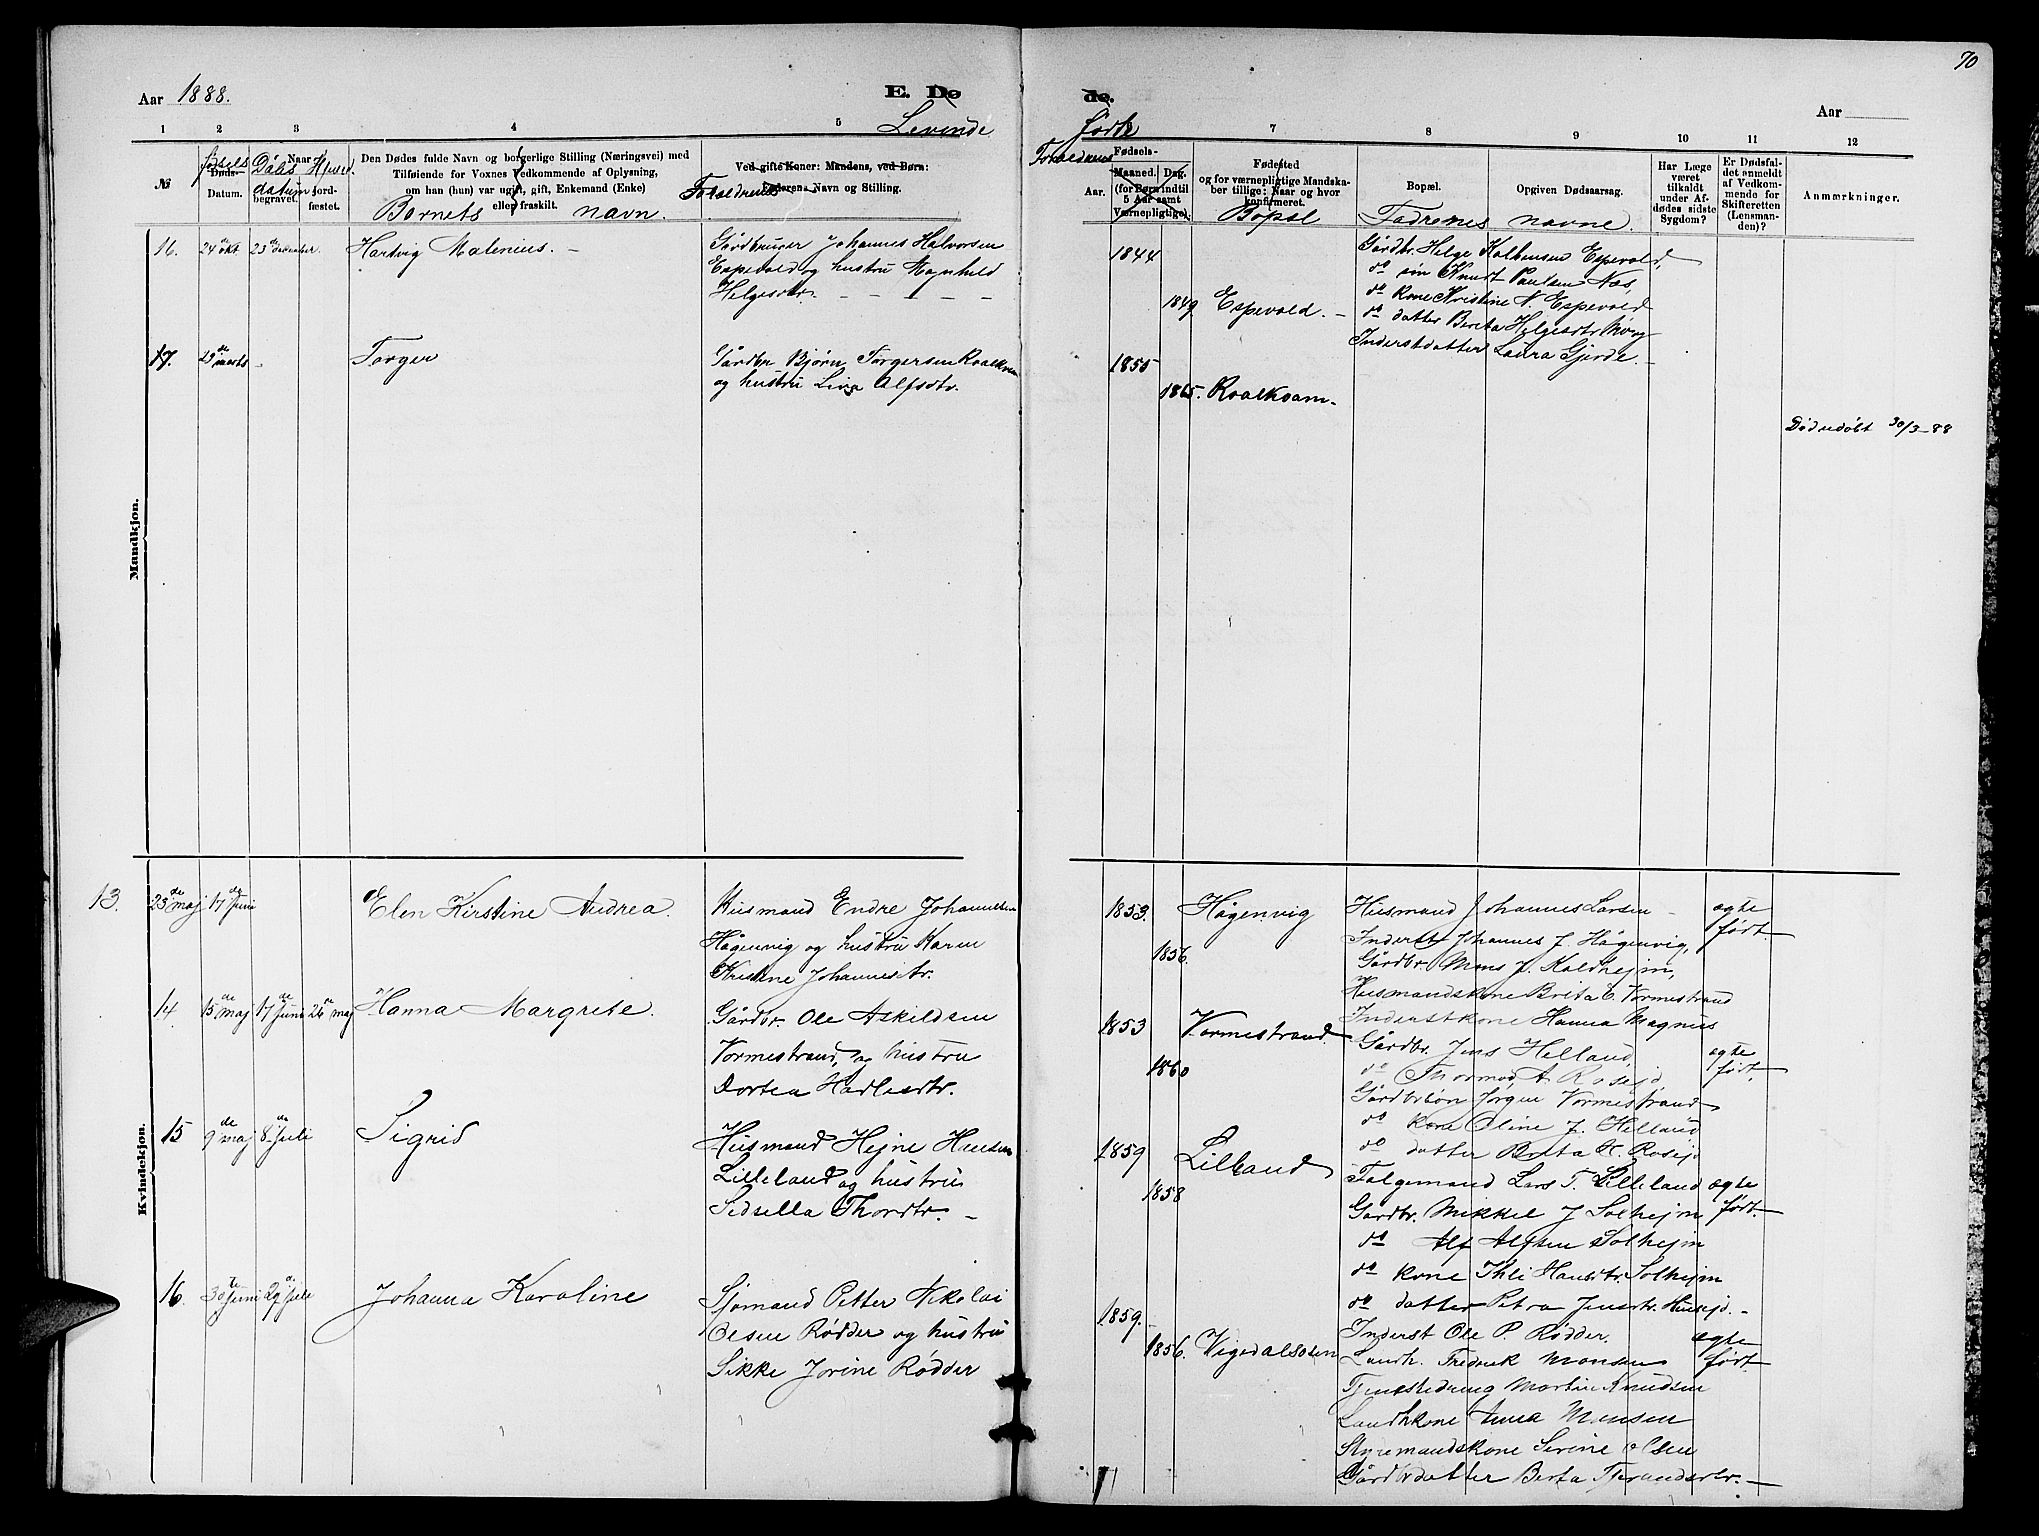 70
Aar 1888.
E. Dø
de.
Aar
1 2 3 4 5 7 8 9 10 11 12
Levende
fødte
№
Døds-
Datum.
fødsels
Naar
Dåbs
datum
Hjemd.
begravet.
jord-
fæstet.
Den Dødes fulde Navn og borgerlige Stilling (Næringsvei) med
Tilføiende for Voxnes Vedkommende af Oplysning,
om han (hun) var ugift, gift, Enkemand (Enke)
eller fraskilt.
Barnets navn.
Ved gifte Koner: Mandens, ved Børn:
Faderens Navn og Stilling.
Forældrenes
Forældrenes
Fødsels-
Aar.
Maaned. Dag.
(for Børn indtil
5 Aar samt
Værnepligtige).
Fødested
og for værnepligtige Mandska-
ber tillige: Naar og hvor
konfirmeret.
Bopæl
Bopæl.
Opgiven Dødsaarsag.
Fadrenes navne.
Har Læge
været
tilkaldt
under Af-
dødes sidste
Sygdom?
Er Dødsfal-
det anmeldt
af Vedkom-
mende for
Skifteretten
(Lensman-
den)?
Anmærkninger.
Mandkjøn.
16. 24de okt 23de december Hartvig Malenius. -
Gårdbruger Johannes Halvorsen
Espevold og hustru Magnhild
Helgesdtr. - - - - -
1844
1849 Espevold. -
Gårdbr. Helge Kolbensen Espevold,
do søn Knudt Paulsen Næs,
do kone Kristine N. Espevold
do datter Berta Helgesdtr
Inderstdatter Laura Gjerde. -
17. 29de marts - Torger
Gårdbr Bjørn Torgersen Roalkvam
og hustru Lina Alfsdtr.
1855
1865. Roalkvam.
Dødsdøbt 30/3-88
Kvindekjøn.
13. 23de maj 17de Juni Elen Kirstine Andrea.
Husmand Endre Johannesen
Hågenvig og hustru Karen
Kristine Johannesdtr.
1853.
1856.
Hågenvig
Husmand Johannes Larsen -
Inderst Johannes J. Hågenvig,
Gårdbr. Mons J. Kaldhejm,
Husmandskone Brita E. Vormestrand
Inderstkone Hanna Magnus
ægte
født.
14. 15de maj 17de Juni 26de maj Hanna Margrete.
Gårdbr. Ole Askildsen
Vormestrand, og hustru
Dortea Hadlesdtr.
1853
1860
Vormestrand.
Gårdbr. Jens Helland,
do Thormod A. Rosejd
Gårdbrsøn Jørgen Vormestrand
do kone Oline J. Helland
do datter Brita H. Rosejd
ægte
født.
15 9de maj 8de Juli Sigrid
Husmand Hejne Hansen
Lilleland og hustru
Sidsella Thordtr. -
1859
1858
Lilland
Folgemand Lars T. Lilleland
Gårdbr. Mikkel J Solhejm
do Alf Alfsen Solhejm
do kone Ihli Hansdtr. Solhejm
do datter Petra Jensdtr. Husejd. -
ægte
født.
16. 30te Juni 29de Juli Johanna Karoline
Sjømand Petter Nikolai
Olsen Rødder og hustru
Sikke Jorine Rødder
1859.
1856.
Vigedalsosen
Inderst Ole P. Rødder.
Landh. Fredrik Monsen
Tjenestedreng Martin Knudsen
Landhkone Anna Monsen
Styremandskone Serine Olsen
Gårdbrdatter Berta Tjerandsdtr. -
ægte
født.